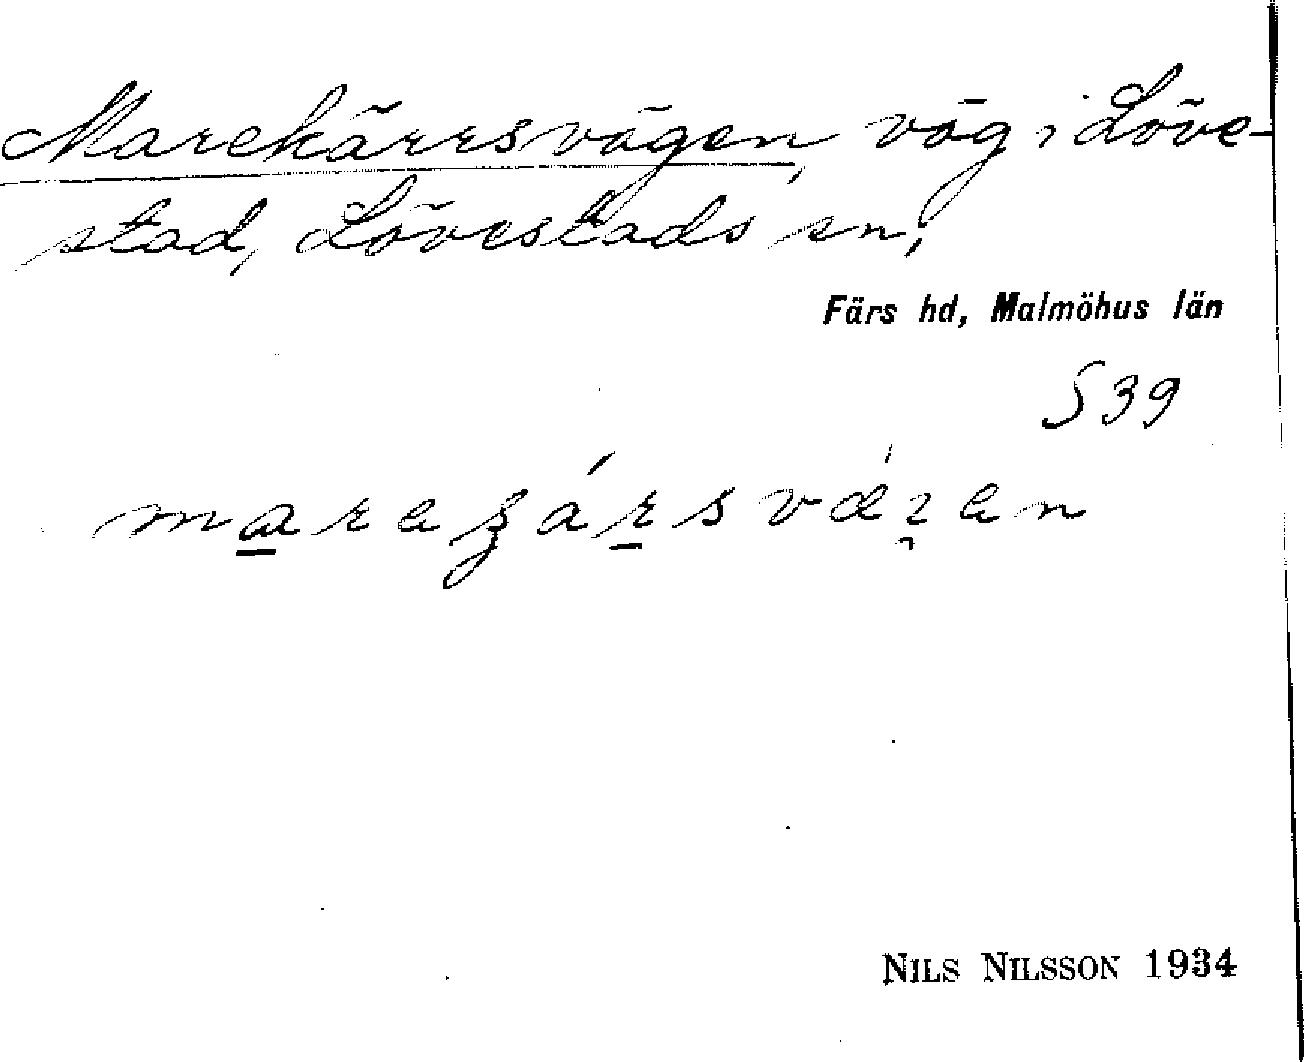 Marekärrsvägen, väg i Löve-
stad, Lövestads sn,
Färs hd, Malmöhus län
S 39
NILS NILSSON 1934